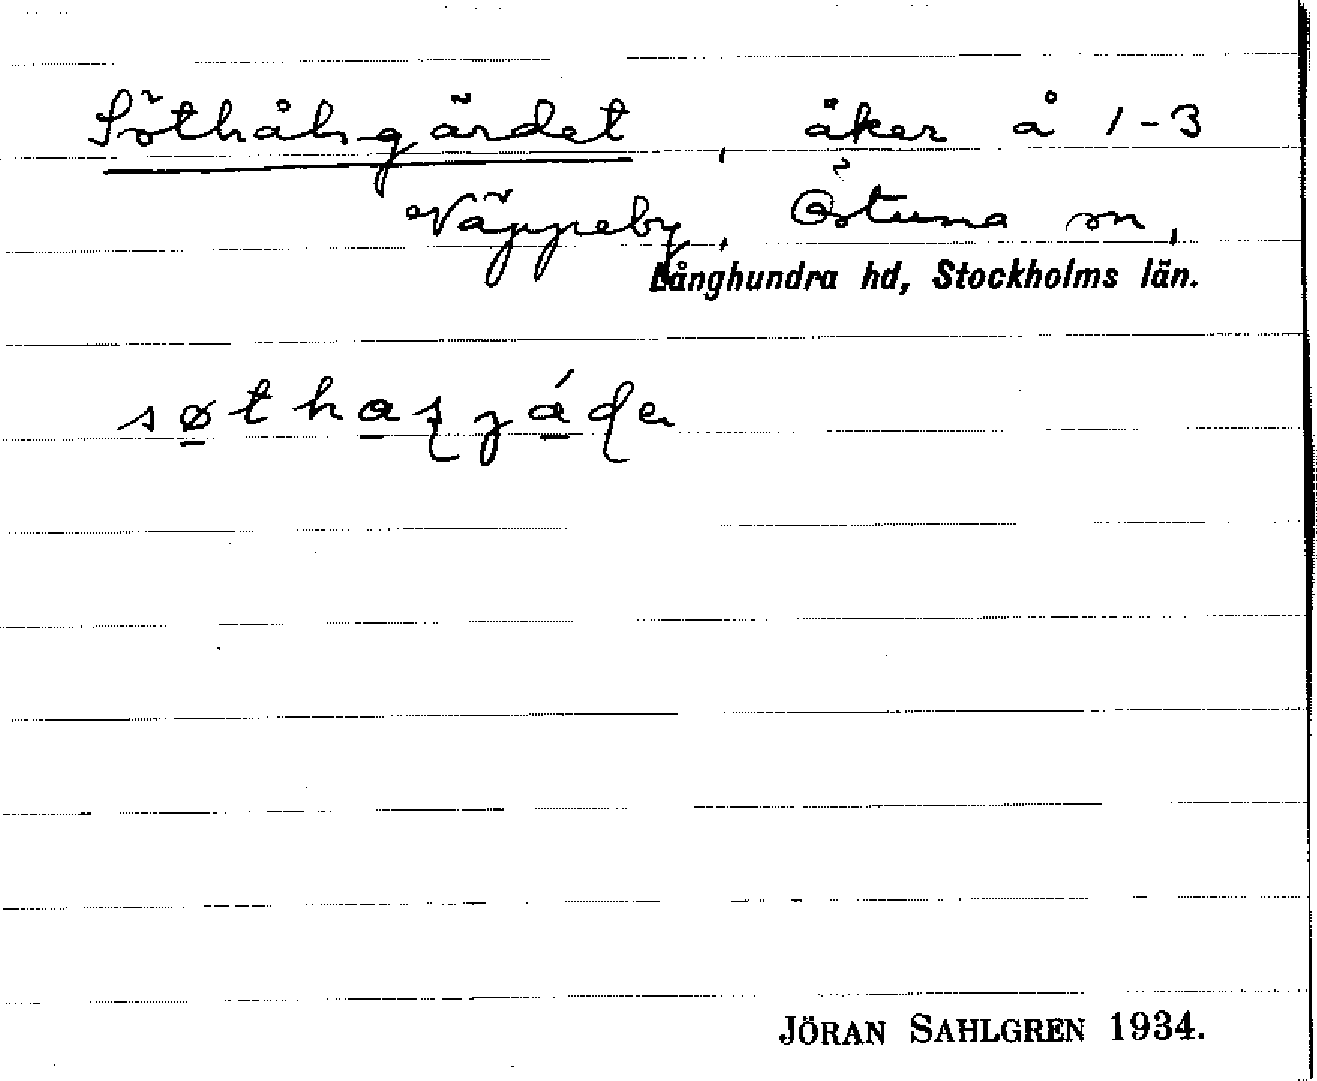 Söthålsgärdet, åker å 1-3
Väppeby, Östuna sn,
Långhundra hd, Stockholms län.
JÖRAN SAHLGREN 1934.